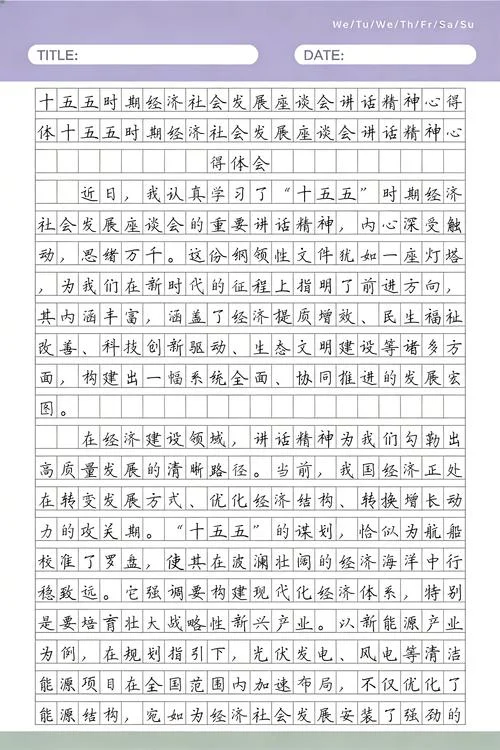 We/Tu/We/Th/Fr/Sa/Su
TITLE: DATE:
十五五时期经济社会发展座谈会讲话精神心得
体十五五时期经济社会发展座谈会讲话精神心
得体会
近日，我认真学习了“十五五”时期经济
社会发展座谈会的重要讲话精神，内心深受触
动，思绪万千。这份纲领性文件犹如一座灯塔
，为我们在新时代的征程上指明了前进方向，
其内涵丰富，涵盖了经济提质增效、民生福祉
改善、科技创新驱动、生态文明建设等诸多方
面，构建出一幅系统全面、协同推进的发展宏
图。
在经济建设领域，讲话精神为我们勾勒出
高质量发展的清晰路径。当前，我国经济正处
在转变发展方式、优化经济结构、转换增长动
力的攻关期。“十五五”的谋划，恰似为航船
校准了罗盘，使其在波澜壮阔的经济海洋中行
稳致远。它强调要构建现代化经济体系，特别
是要培育壮大战略性新兴产业。以新能源产业
为例，在规划指引下，光伏发电、风电等清洁
能源项目在全国范围内加速布局，不仅优化了
能源结构，宛如为经济社会发展安装了强劲的